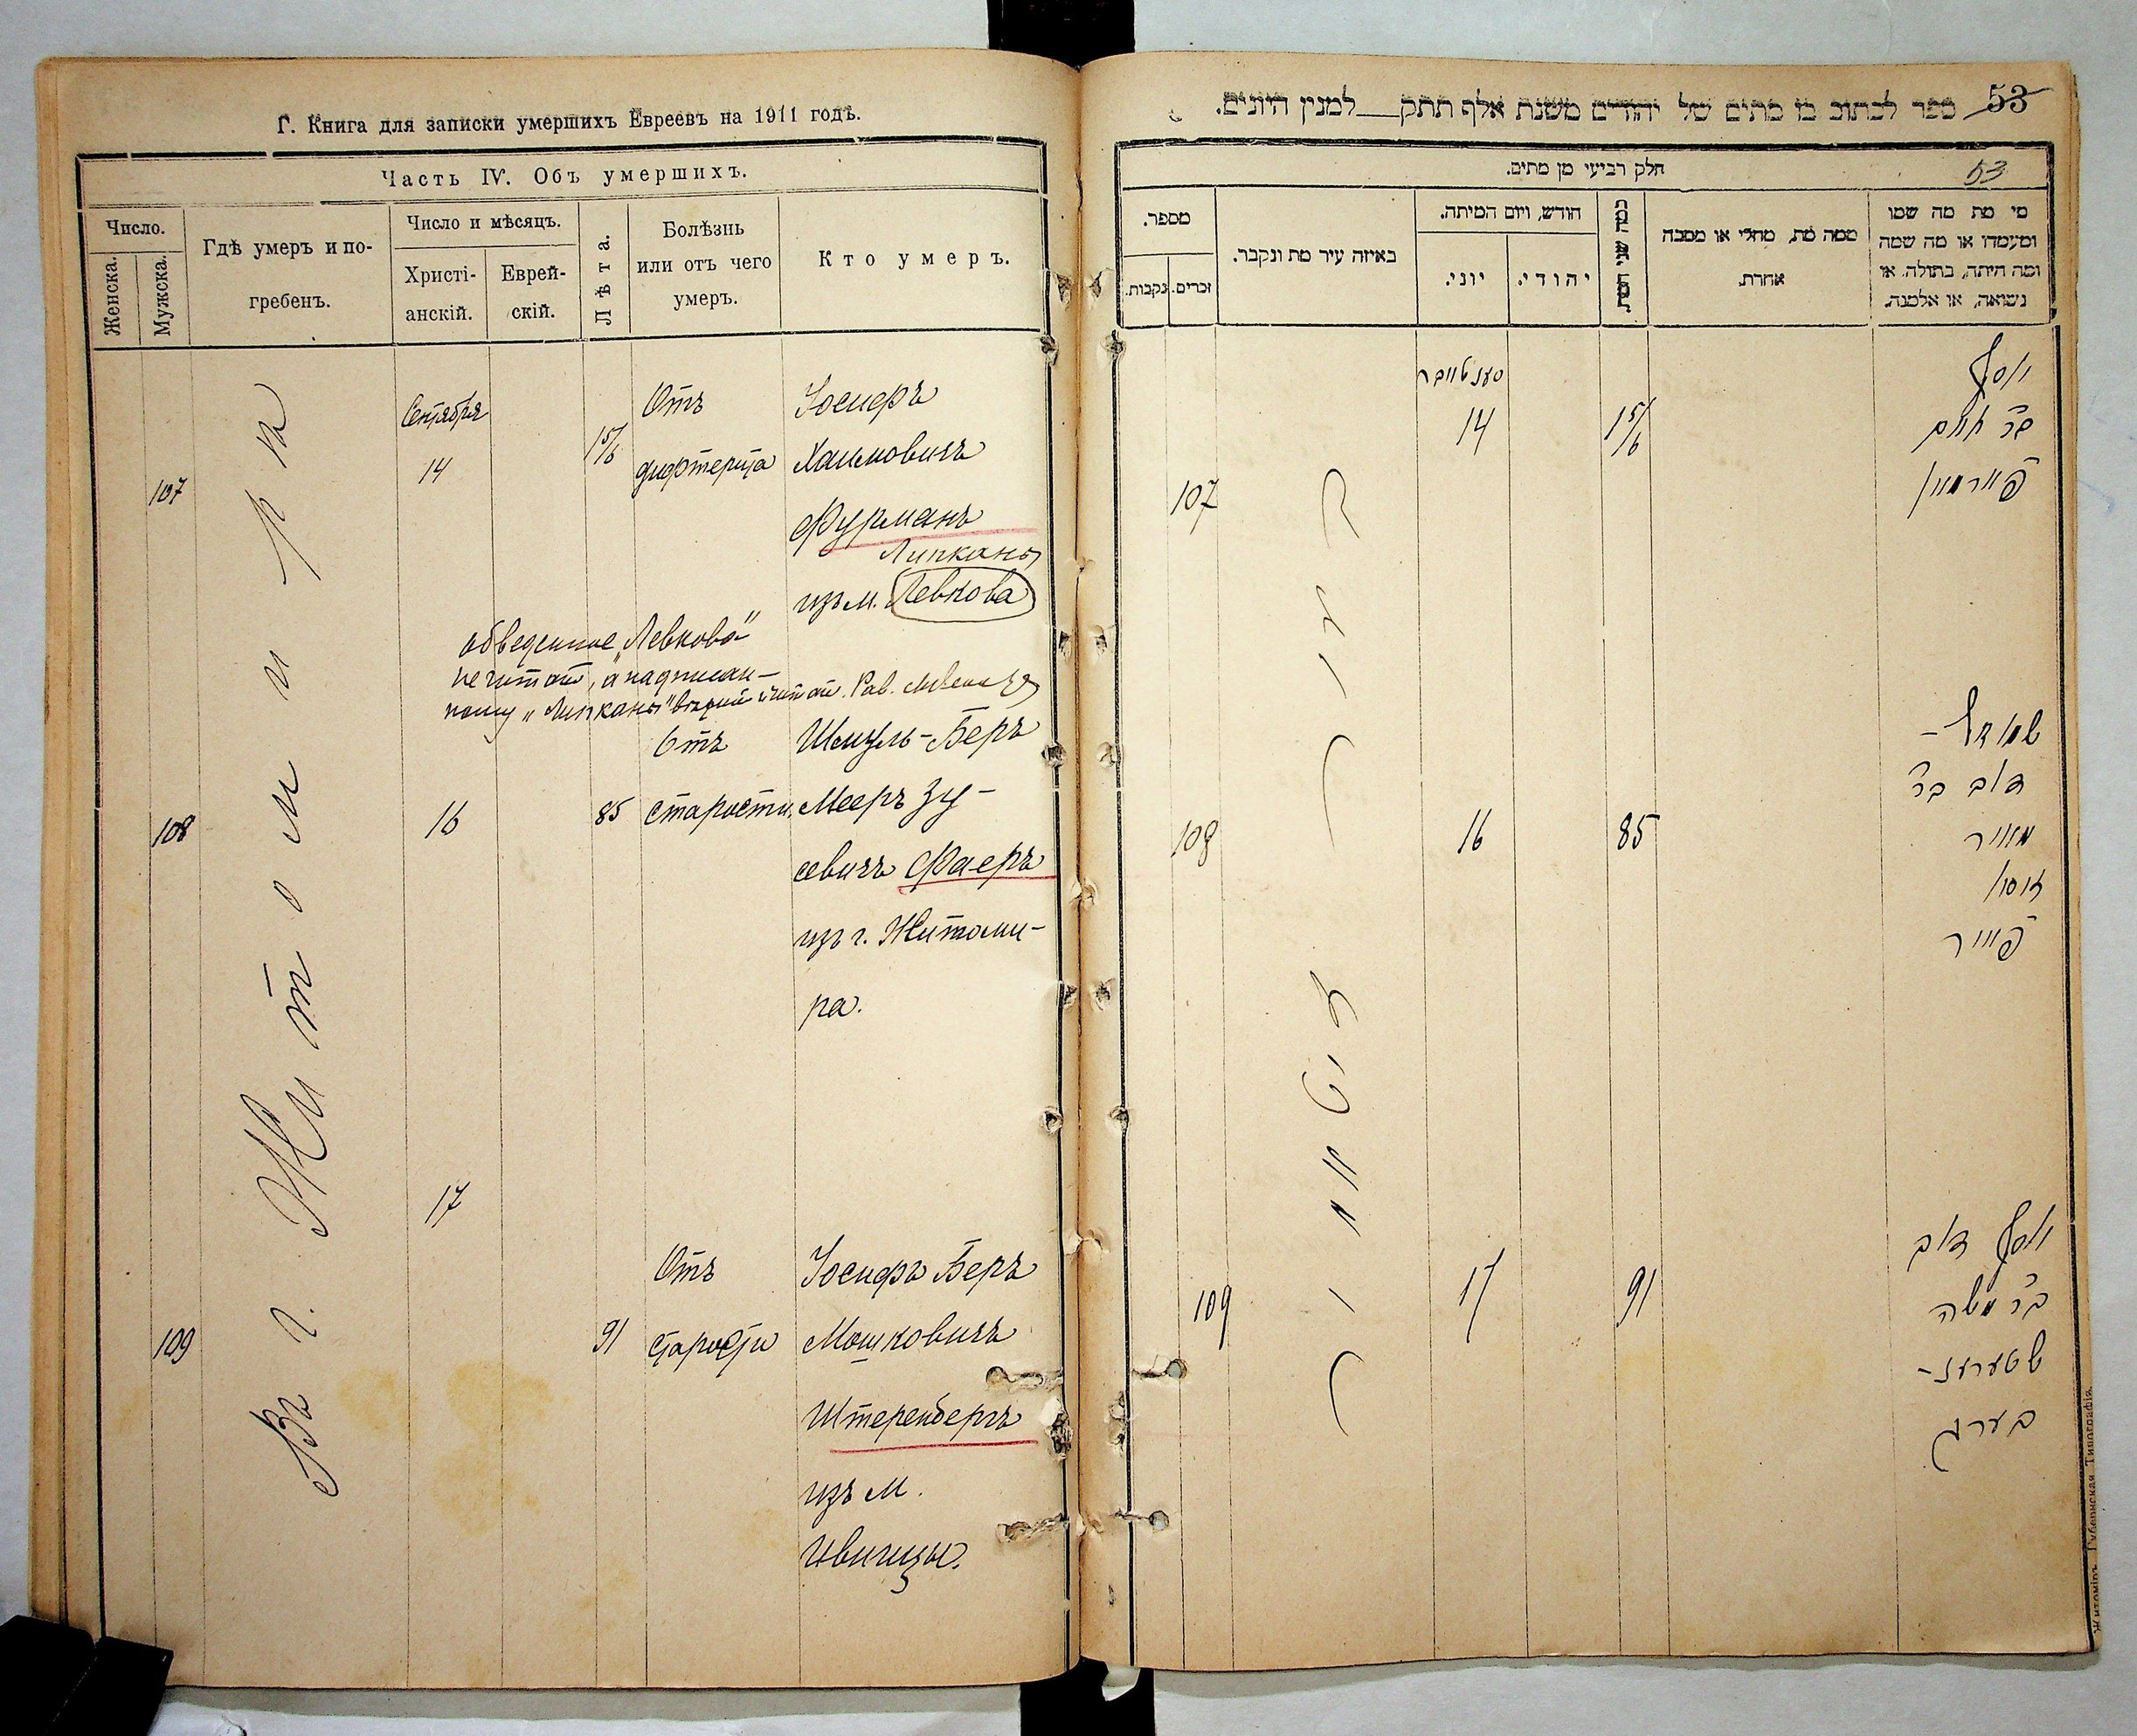 Г. Книга для записки умершихъ Евреевъ на 1911 годъ.
Часть IV. Объ умершихъ.
Число.
Женска.
Мужска.
Гдѣ умеръ и по-
гребенъ.
Число и мѣсяцъ.
Христі-
анскій.
Еврей-
скій.
Лѣта.
Болѣзнь
или отъ чего
умеръ.
Кто умеръ.
Въ г. Житомирѣ
Сентября
107
14
15/6
Отъ
дифтерита
Іосифъ
Хаимовичъ
Фурманъ
Липканы
изъ м. Левкова
обведенное „Левкова"
не читать, а надписан-
ному „Липканы" вѣрить и читать. Рав.
108
16
85
Отъ
старости.
Шмуль-Беръ
Мееръ Зу-
севичъ Фаеръ
изъ г. Житоми-
ра.
109
17
91
Отъ
старости
Іосифъ Беръ
Мошковичъ
Штеренбергъ
изъ м.
Ивницы.
ספר לכתוב בו מתים של יהודים משנת אלף תתק__למנין היונים.
53
חלק רביעי מן מתים.
53
מי מת מה שמו
ומעמדו או מה שמה
ומה היתה, בתולה. או
נשואה, או אלמנה.
ממה מת, מחלי או מסבה
אחרת.
כמה שני המת
חודש, ויום המיתה.
יהודי.
יוני.
באיזה עיר מת ונקבר.
מספר.
זכרים.
נקבות.
סענטיאבר
יוסף
בר חיים
פורמאן
15/6
14
107
שמואל-
דוב בר
מאיר
זוסי
פייער
85
16
108
יוסף דוב
בר משה
שטערנ-
בערג
91
17
109
זיטאמיר
Житоміръ Губернская Типографія